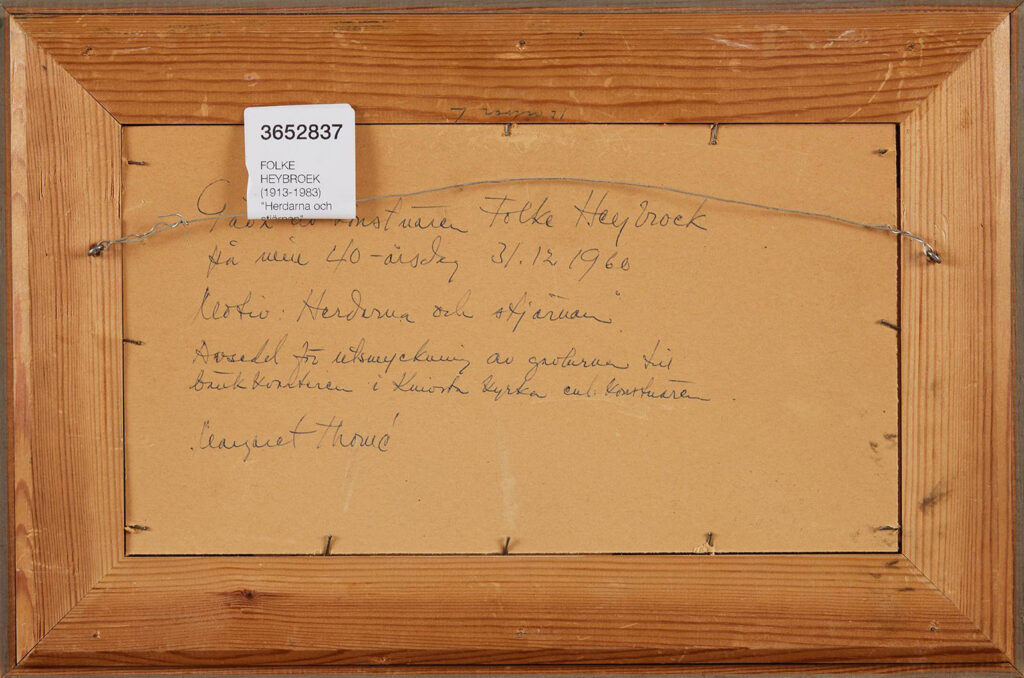 3652837
FOLKE
HEYBROEK
(1913-1983)
"Herdarna och
stjärnan"
Gåva av konstnären Folke Heybrock
på min 40-årsdag 31.12 1960
Motiv: Herdarna och stjärnan"
för utsmyckning av gavlarna till
bänkkvarteren i Knivsta kyrka enl. konstnären.
Margaret Thomé